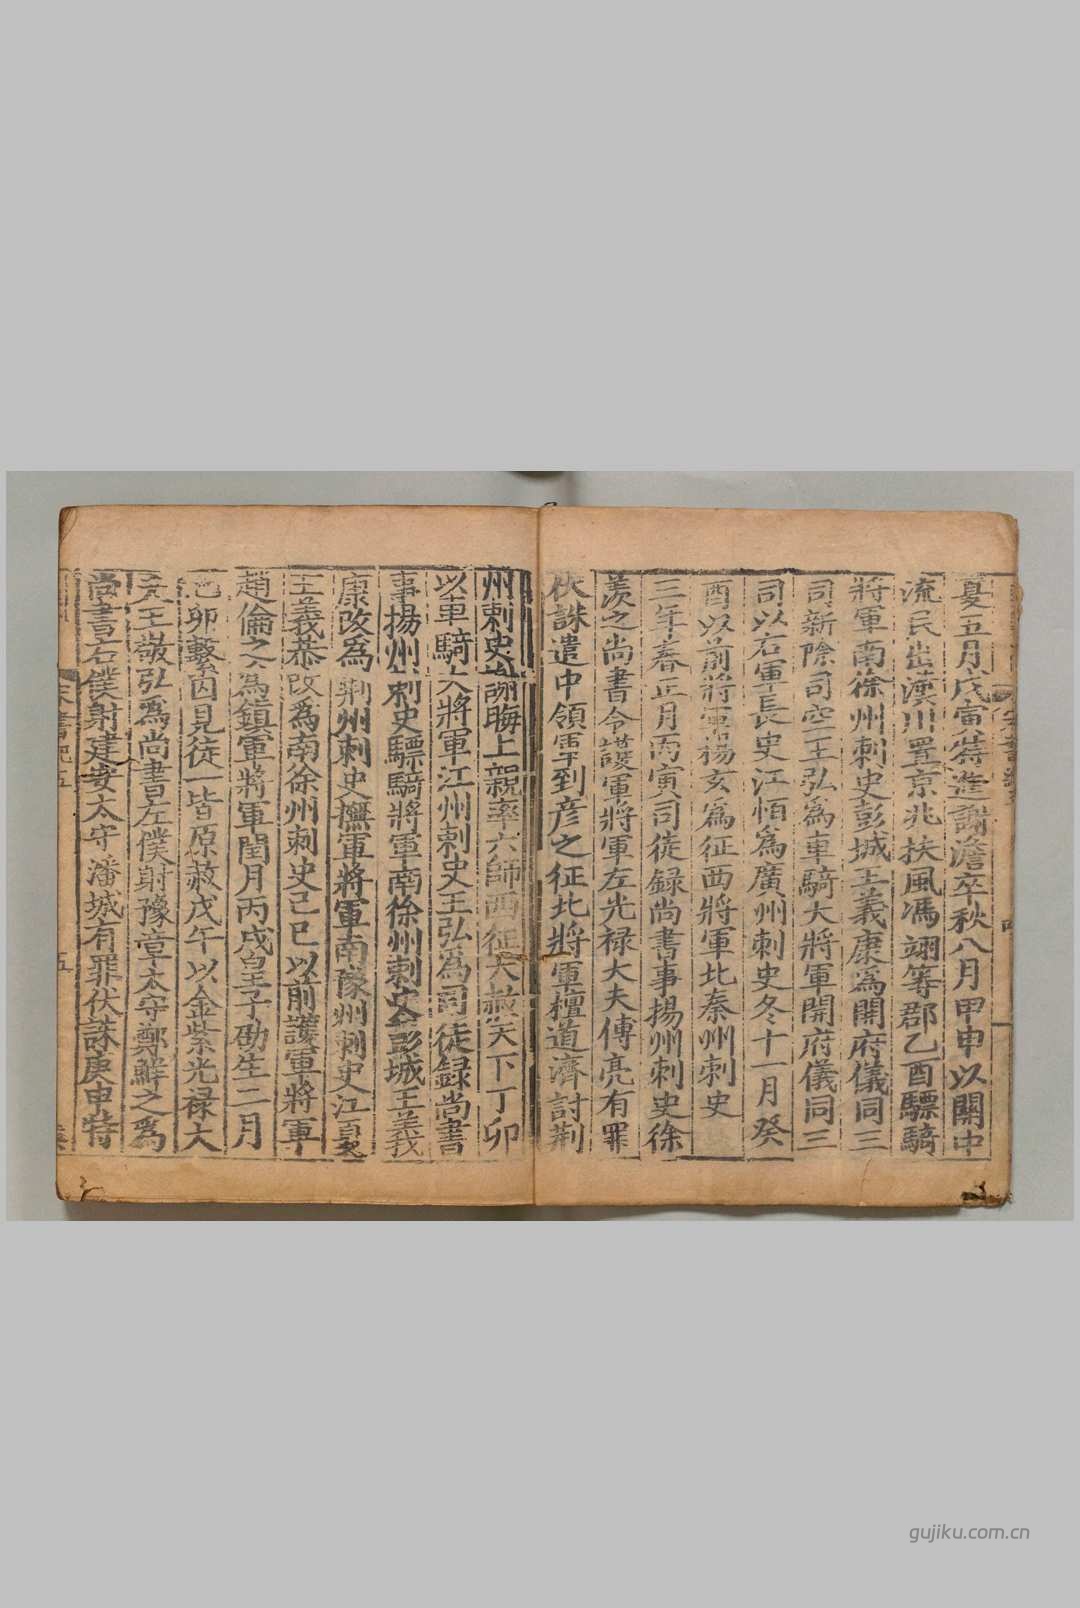 夏五月戊寅特進謝澹卒秋八月甲申以關中
流民出漢川置京兆扶風馮翊等郡乙酉驃騎
將軍南徐州刺史彭城王義康爲開府儀同三
司新除司空王弘爲車騎大將軍開府儀同三
司以右軍長史江恒爲廣州刺史冬十一月癸
酉以前將軍楊玄爲征西將軍北秦州刺史
三年春正月丙寅司徒録尚書事揚州刺史徐
羨之尚書令護軍將軍左光禄大夫傅亮有罪
伏誅遣中領軍到彦之征北將軍檀道濟討荆
州刺史謝晦上親率六師西征大赦天下丁卯
以車騎大將軍江州刺史王弘爲司徒録尚書
事揚州刺史驃騎將軍南徐州刺史彭城王義
康改爲荆州刺史撫軍將軍南豫州刺史江夏
王義恭改爲南徐州刺史己巳以前護軍將軍
趙倫之爲鎮軍將軍閏月丙戌皇子劭生二月
己卯繫囚見徒一皆原赦戊午以金紫光禄大
夫王敬弘爲尚書左僕射豫章太守鄭鮮之爲
尚書右僕射建安太守潘城有罪伏誅庚申特
宋書紀五
五
gujiku.com.cn